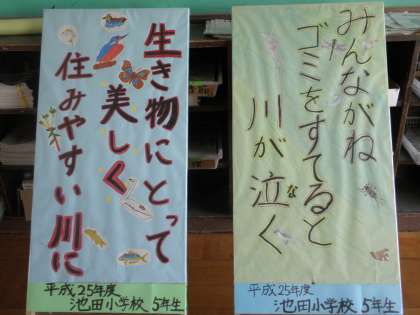 生き物にとって
美しく
住みやすい川に
平成25年度
池田小学校 5年生
みんながね
ゴミをすてると
川が泣く
な
平成25年度
池田小学校 5年生